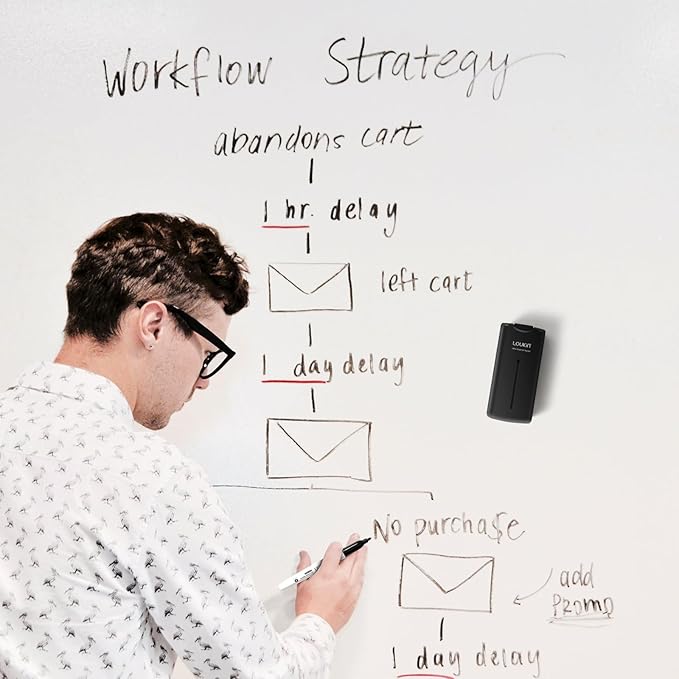 Workflow Strategy
abandons cart
1 hr. delay
left cart
1 day delay
No purchase
add
PROMO
1 day delay
LOUKIN